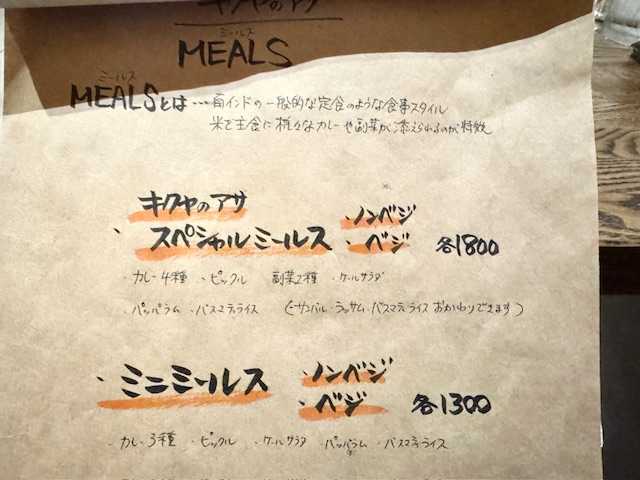 キクヤのアサ
ミールス
MEALS
ミールス
MEALSとは…南インドの一般的な定食のような食事スタイル
米を主食に様々なカレーや副菜が添えられるのが特徴
キクヤのアサ
・スペシャルミールス ・ノンベジ ・ベジ 各1800
・カレー4種 ・ピックル 副菜2種 ・ケールサラダ
・パッパラム ・バスマティライス (-サンバル・ラッサム・バスマティライスおかわりできます)
・ミニミールス ・ノンベジ ・ベジ 各1300
・カレー3種 ・ピックル ・ケールサラダ ・パッパラム ・バスマティライス